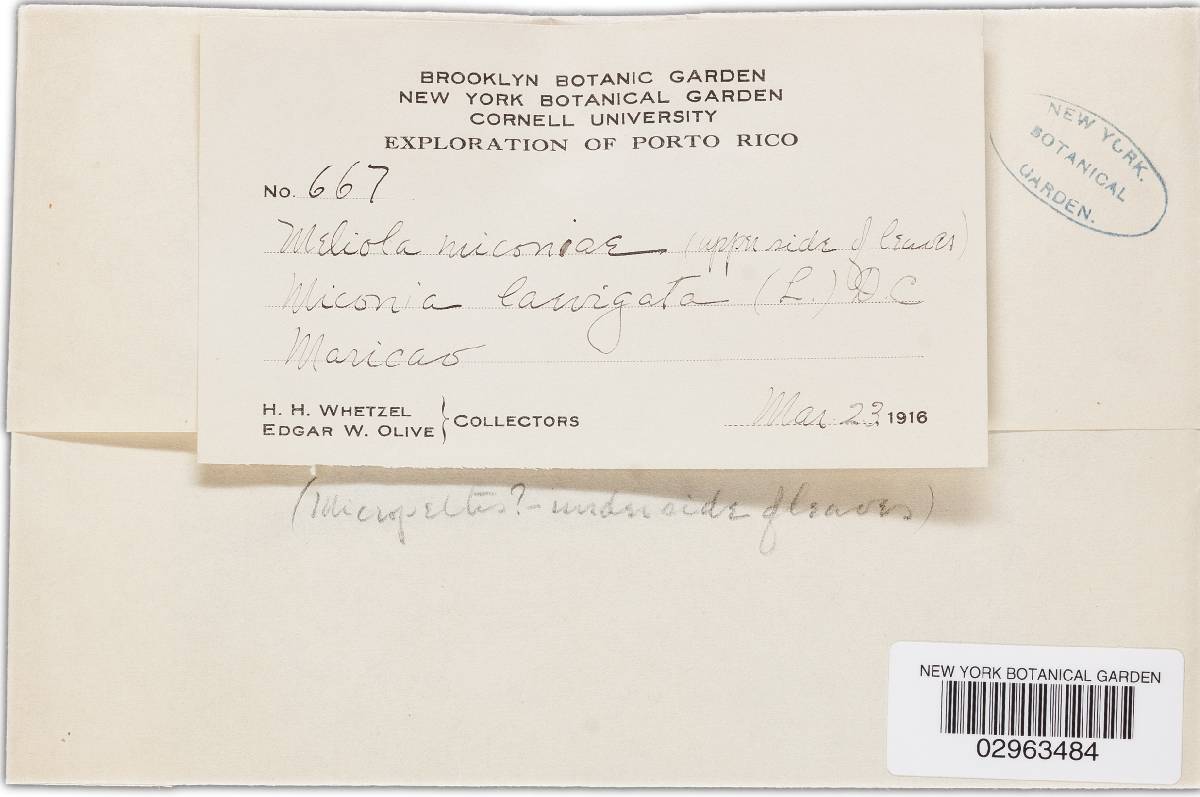 BROOKLYN BOTANIC GARDEN
NEW YORK BOTANICAL GARDEN
CORNELL UNIVERSITY
EXPLORATION OF PORTO RICO
No. 667
Meliola miconiae (upper side of leaves)
Miconia laevigata (L.) DC
Maricao
H. H. WHETZEL
EDGAR W. OLIVE } COLLECTORS
Mar 23 1916
(Micropeltis? - under side of leaves)
NEW YORK
BOTANICAL
GARDEN.
NEW YORK BOTANICAL GARDEN
02963484